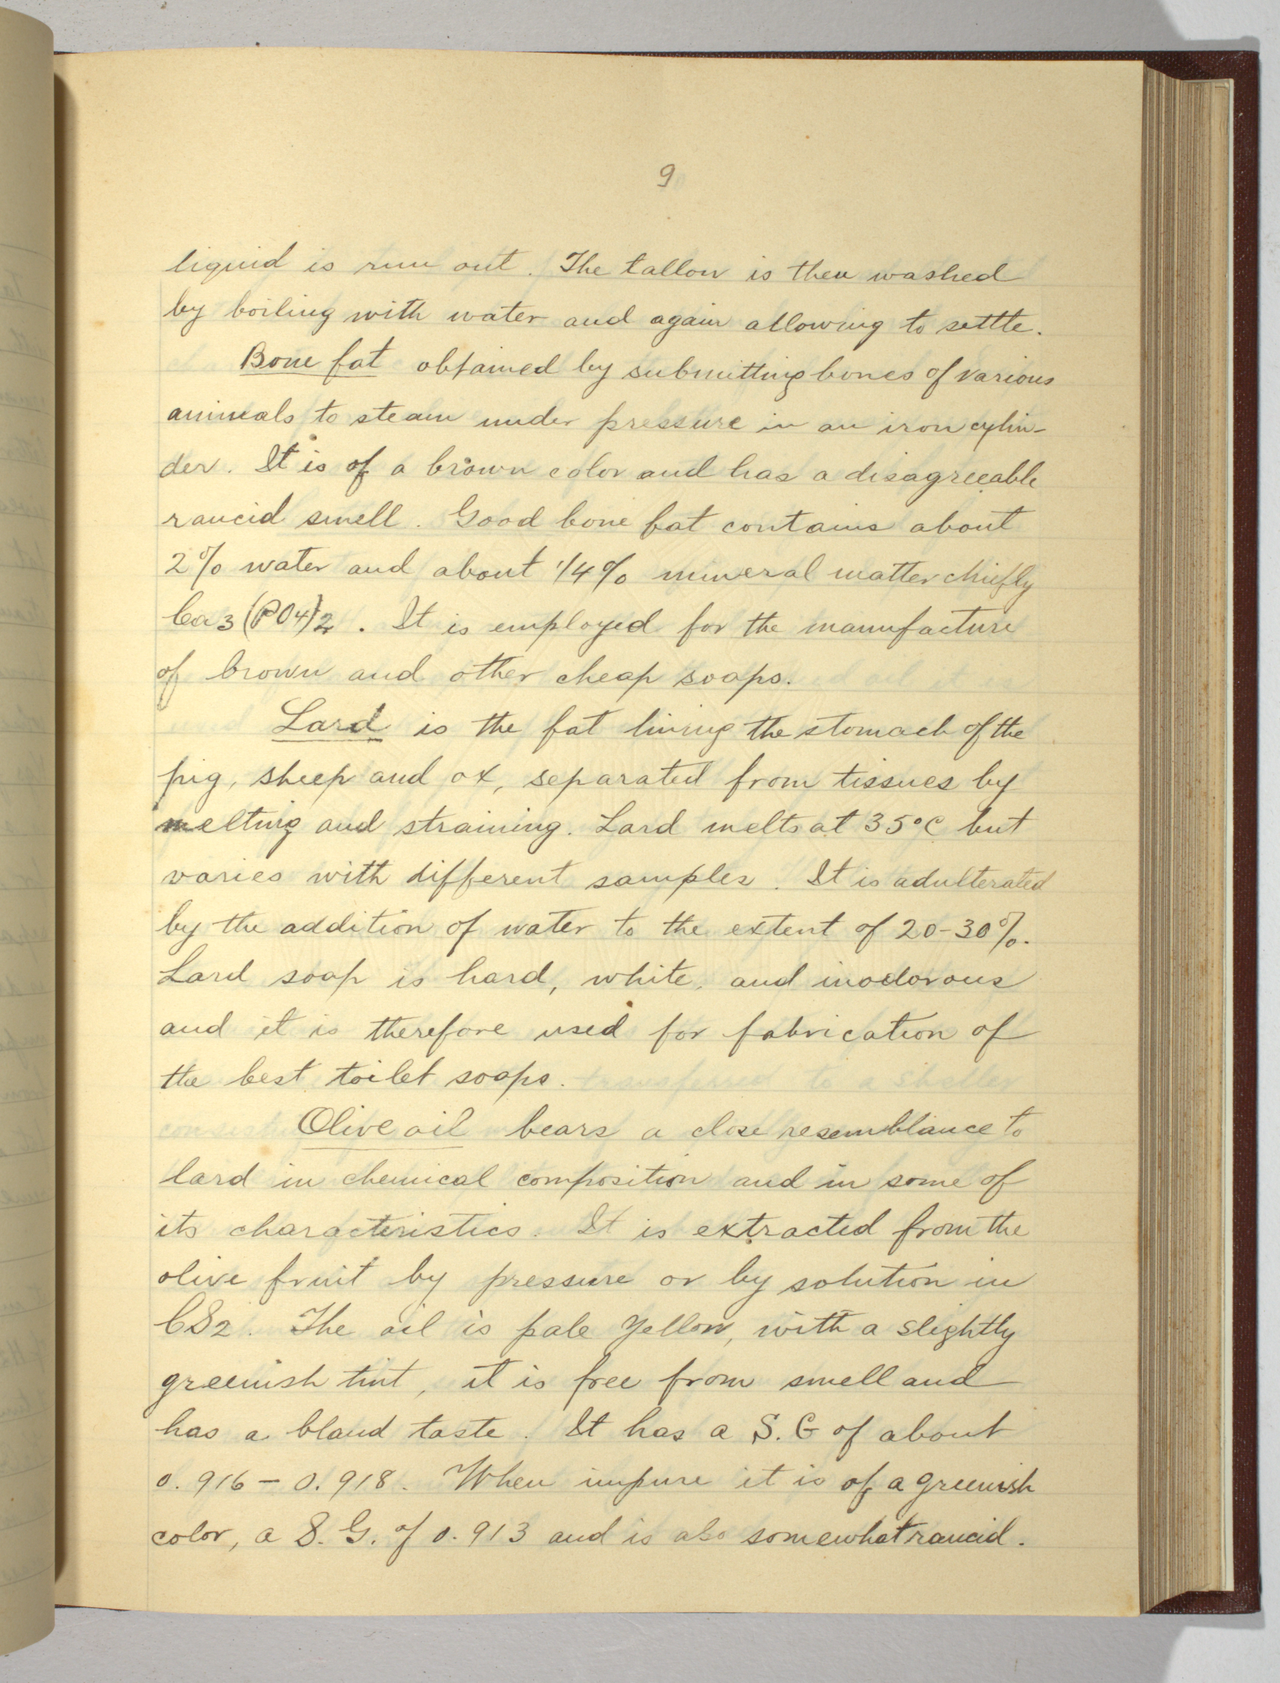 9
liquid is run out. The tallow is then washed
by boiling with water and again allowing to settle.
Bone fat obtained by submitting bones of various
animals to steam under pressure in an iron cylin-
der. It is of a brown color and has a disagreeable
rancid smell. Good bone fat contains about
2% water and about 1/4% mineral matter chiefly
Ca3(PO4)2. It is employed for the manufacture
of brown and other cheap soaps.
Lard is the fat lining the stomach of the
pig, sheep and ox, separated from tissues by
melting and straining. Lard melts at 35°C but
varies with different samples. It is adulterated
by the addition of water to the extent of 20-30%.
Lard soap is hard, white, and inodorous
and it is therefore used for fabrication of
the best toilet soaps.
Olive oil bears a close resemblance to
lard in chemical composition and in some of
its characteristics. It is extracted from the
olive fruit by pressure or by solution in
CS2. The oil is pale yellow, with a slightly
greenish tint, it is free from smell and
has a bland taste. It has a S.G of about
0.916 - 0.918. When impure it is of a greenish
color, a S.G. of 0.913 and is also somewhat rancid.